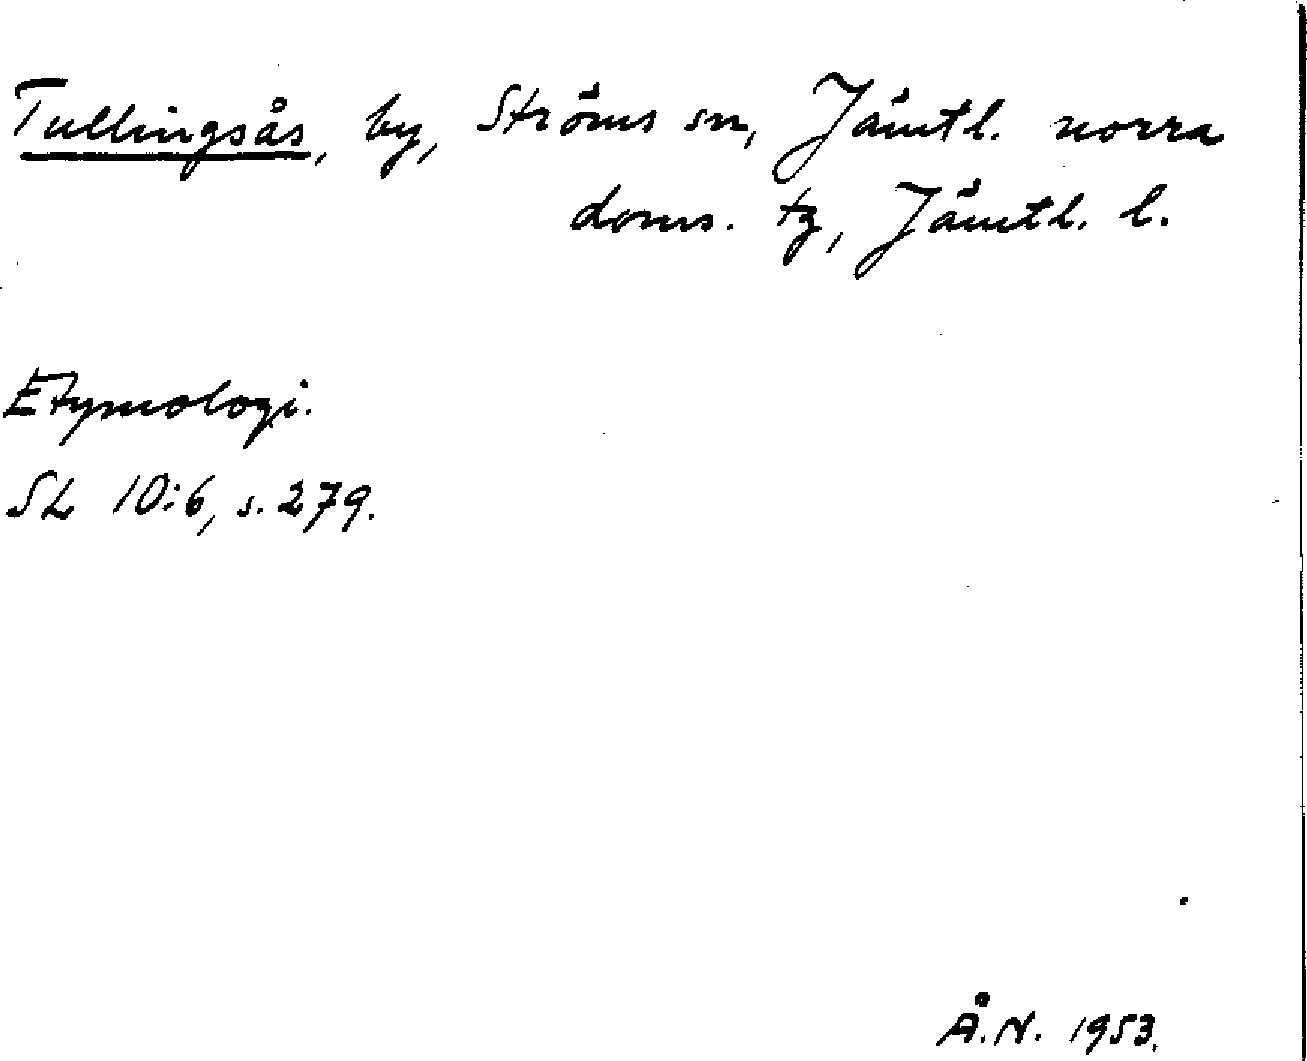 Tullingsås, by, Ströms sn, Jämtl. norra
doms. tg, Jämtl. l.
Etymologi.
SL 10:6, s. 279.
Å.N. 1953.